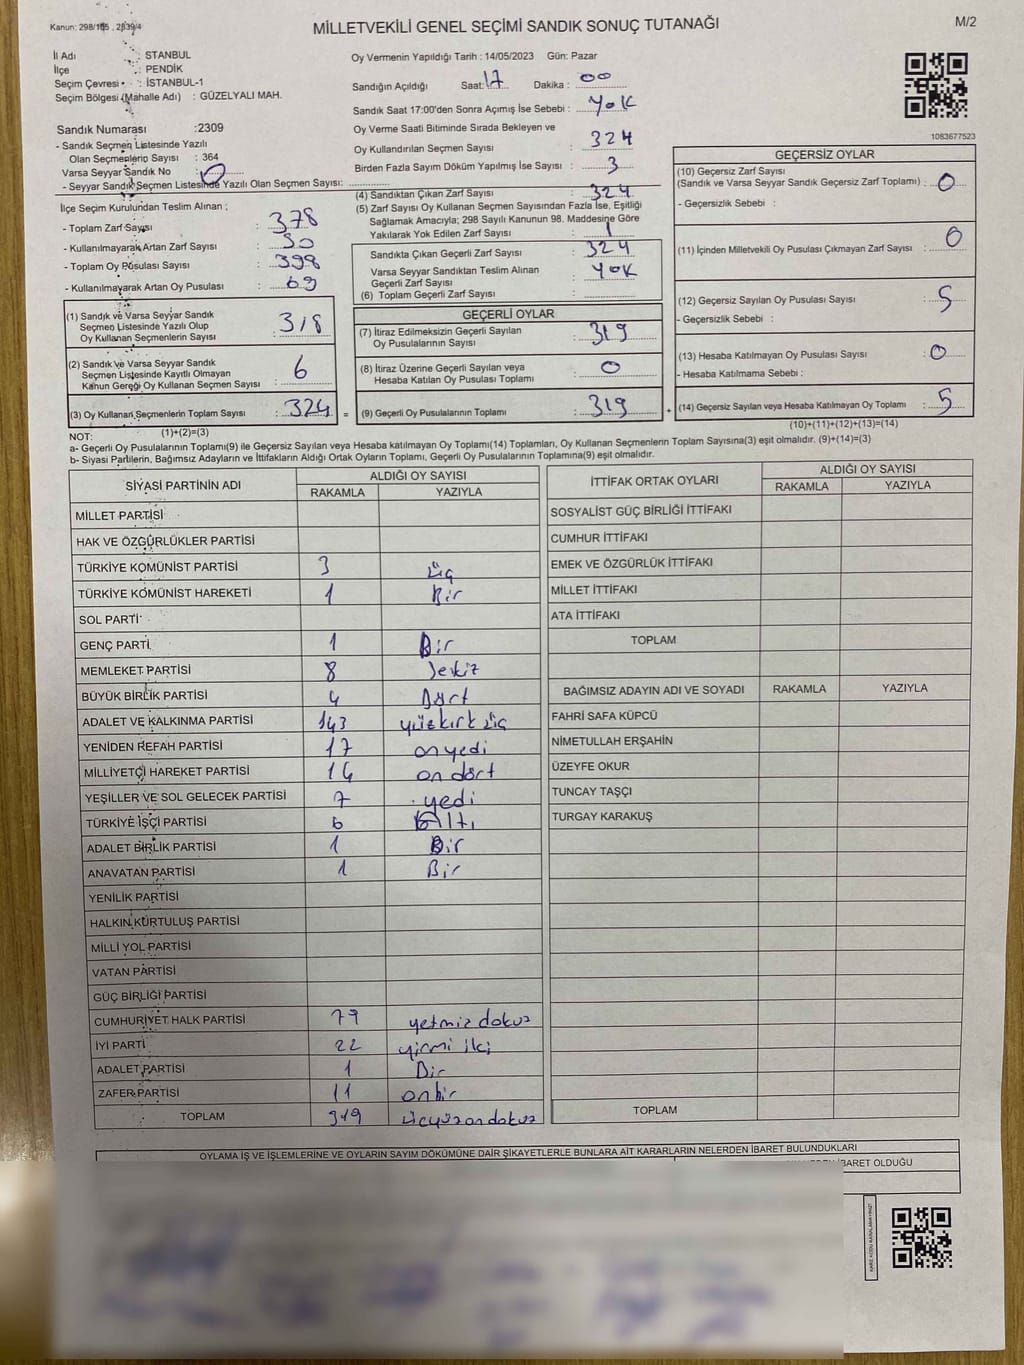 Kanun: 298/105 , 2839/4
MİLLETVEKİLİ GENEL SEÇİMİ SANDIK SONUÇ TUTANAĞI
M/2
İl Adı : İSTANBUL
İlçe : PENDİK
Seçim Çevresi : İSTANBUL-1
Seçim Bölgesi (Mahalle Adı) : GÜZELYALI MAH.
Oy Vermenin Yapıldığı Tarih : 14/05/2023 Gün: Pazar
Sandığın Açıldığı Saat: 17 Dakika : 00
Sandık Saat 17:00'den Sonra Açımış İse Sebebi : YOK
Sandık Numarası :2309
- Sandık Seçmen Listesinde Yazılı
Olan Seçmenlerin Sayısı : 364
Varsa Seyyar Sandık No : 0
- Seyyar Sandık Seçmen Listesinde Yazılı Olan Seçmen Sayısı:
Oy Verme Saati Bitiminde Sırada Bekleyen ve
Oy Kullandırılan Seçmen Sayısı : 324
Birden Fazla Sayım Döküm Yapılmış İse Sayısı : 3
1083677523
İlçe Seçim Kurulundan Teslim Alınan ;
- Toplam Zarf Sayısı : 378
- Kullanılmayarak Artan Zarf Sayısı : 50
- Toplam Oy Pusulası Sayısı : 398
- Kullanılmayarak Artan Oy Pusulası : 69
(1) Sandık ve Varsa Seyyar Sandık
Seçmen Listesinde Yazılı Olup
Oy Kullanan Seçmenlerin Sayısı : 318
(2) Sandık ve Varsa Seyyar Sandık
Seçmen Listesinde Kayıtlı Olmayan
Kanun Gereği Oy Kullanan Seçmen Sayısı : 6
(3) Oy Kullanan Seçmenlerin Toplam Sayısı : 324 =
(1)+(2)=(3)
(4) Sandıktan Çıkan Zarf Sayısı : 324
(5) Zarf Sayısı Oy Kullanan Seçmen Sayısından Fazla İse, Eşitliği
Sağlamak Amacıyla; 298 Sayılı Kanunun 98. Maddesine Göre
Yakılarak Yok Edilen Zarf Sayısı : 1
Sandıkta Çıkan Geçerli Zarf Sayısı : 324
Varsa Seyyar Sandıktan Teslim Alınan
Geçerli Zarf Sayısı : YOK
(6) Toplam Geçerli Zarf Sayısı :
GEÇERLİ OYLAR
(7) İtiraz Edilmeksizin Geçerli Sayılan
Oy Pusulalarının Sayısı : 319
(8) İtiraz Üzerine Geçerli Sayılan veya
Hesaba Katılan Oy Pusulası Toplamı : 0
(9) Geçerli Oy Pusulalarının Toplamı : 319 +
GEÇERSİZ OYLAR
(10) Geçersiz Zarf Sayısı
(Sandık ve Varsa Seyyar Sandık Geçersiz Zarf Toplamı) : 0
- Geçersizlik Sebebi :
(11) İçinden Milletvekili Oy Pusulası Çıkmayan Zarf Sayısı : 0
(12) Geçersiz Sayılan Oy Pusulası Sayısı : 5
- Geçersizlik Sebebi :
(13) Hesaba Katılmayan Oy Pusulası Sayısı : 0
- Hesaba Katılmama Sebebi :
(14) Geçersiz Sayılan veya Hesaba Katılmayan Oy Toplamı : 5
(10)+(11)+(12)+(13)=(14)
NOT:
a- Geçerli Oy Pusulalarının Toplamı(9) ile Geçersiz Sayılan veya Hesaba katılmayan Oy Toplamı(14) Toplamları, Oy Kullanan Seçmenlerin Toplam Sayısına(3) eşit olmalıdır. (9)+(14)=(3)
b- Siyasi Partilerin, Bağımsız Adayların ve İttifakların Aldığı Ortak Oyların Toplamı, Geçerli Oy Pusulalarının Toplamına(9) eşit olmalıdır.
SİYASİ PARTİNİN ADI ALDIĞI OY SAYISI
RAKAMLA YAZIYLA
MİLLET PARTİSİ
HAK VE ÖZGÜRLÜKLER PARTİSİ
TÜRKİYE KOMÜNİST PARTİSİ 3 üç
TÜRKİYE KOMÜNİST HAREKETİ 1 Bir
SOL PARTİ
GENÇ PARTİ 1 Bir
MEMLEKET PARTİSİ 8 Sekiz
BÜYÜK BİRLİK PARTİSİ 4 Dört
ADALET VE KALKINMA PARTİSİ 143 yüzkırküç
YENİDEN REFAH PARTİSİ 17 onyedi
MİLLİYETÇİ HAREKET PARTİSİ 14 on dört
YEŞİLLER VE SOL GELECEK PARTİSİ 7 yedi
TÜRKİYE İŞÇİ PARTİSİ 6 Altı
ADALET BİRLİK PARTİSİ 1 Bir
ANAVATAN PARTİSİ 1 Bir
YENİLİK PARTİSİ
HALKIN KURTULUŞ PARTİSİ
MİLLİ YOL PARTİSİ
VATAN PARTİSİ
GÜÇ BİRLİĞİ PARTİSİ
CUMHURİYET HALK PARTİSİ 79 yetmiz dokuz
İYİ PARTİ 22 yirmi iki
ADALET PARTİSİ 1 Bir
ZAFER PARTİSİ 11 onbir
TOPLAM 319 üçyüzondokuz
İTTİFAK ORTAK OYLARI ALDIĞI OY SAYISI
RAKAMLA YAZIYLA
SOSYALİST GÜÇ BİRLİĞİ İTTİFAKI
CUMHUR İTTİFAKI
EMEK VE ÖZGÜRLÜK İTTİFAKI
MİLLET İTTİFAKI
ATA İTTİFAKI
TOPLAM
BAĞIMSIZ ADAYIN ADI VE SOYADI RAKAMLA YAZIYLA
FAHRİ SAFA KÜPCÜ
NİMETULLAH ERŞAHİN
ÜZEYFE OKUR
TUNCAY TAŞÇI
TURGAY KARAKUŞ
TOPLAM
OYLAMA İŞ VE İŞLEMLERİNE VE OYLARIN SAYIM DÖKÜMÜNE DAİR ŞİKAYETLERLE BUNLARA AİT KARARLARIN NELERDEN İBARET BULUNDUKLARI
İBARET OLDUĞU